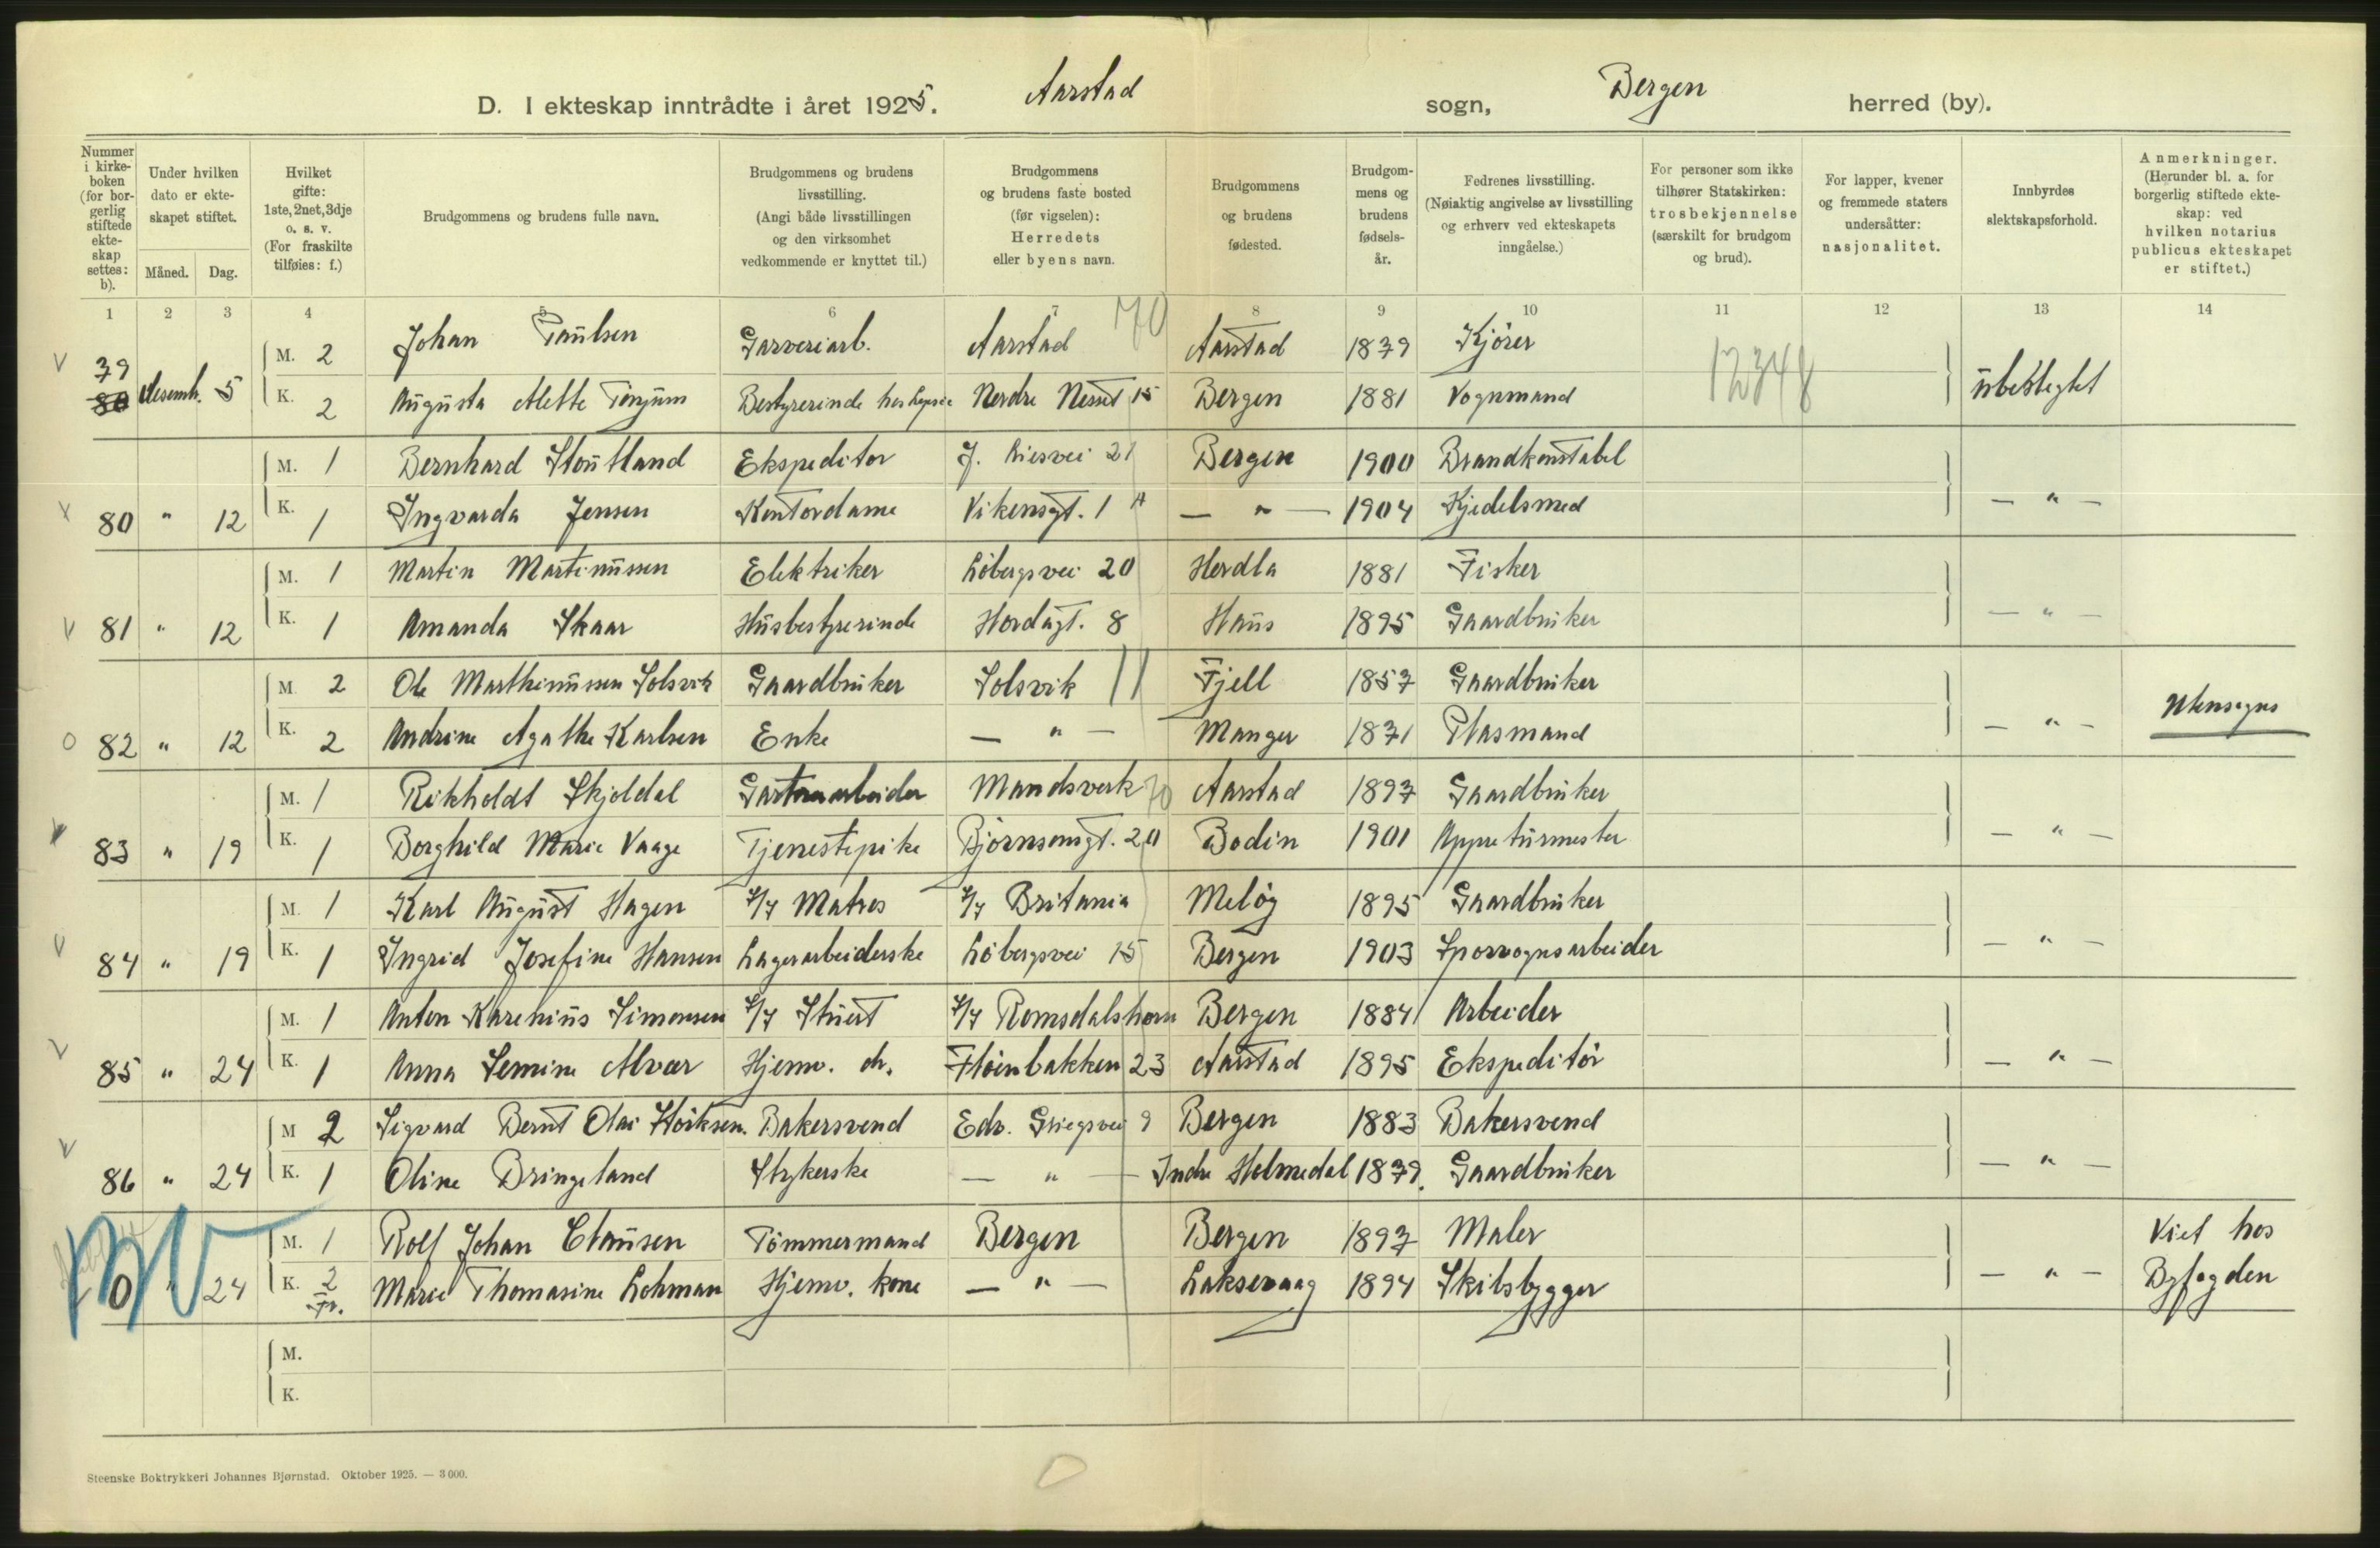 D. I ekteskap inntrådte i året 1925. Aarstad sogn, Bergen herred (by).
Nummer i kirkeboken (for borgerlig stiftede ekteskap settes: b).
Under hvilken dato er ekteskapet stiftet.
Måned. Dag.
Hvilket gifte: 1ste, 2net, 3dje o. s. v. (For fraskilte tilføies: f.)
Brudgommens og brudens fulle navn.
Brudgommens og brudens livsstilling. (Angi både livsstillingen og den virksomhet vedkommende er knyttet til.)
Brudgommens og brudens faste bosted (før vigselen): Herredets eller byens navn.
Brudgommens og brudens fødested.
Brudgommens og brudens fødselsår.
Fedrenes livsstilling. (Nøiaktig angivelse av livsstilling og erhverv ved ekteskapets inngåelse.)
For personer som ikke tilhører Statskirken: trosbekjennelse (særskilt for brudgom og brud).
For lapper, kvener og fremmede staters undersåtter: nasjonalitet.
Innbyrdes slektskapsforhold.
Anmerkninger. (Herunder bl. a. for borgerlig stiftede ekteskap: ved hvilken notarius publicus ekteskapet er stiftet.)
1 2 3 4 5 6 7 8 9 10 11 12 13 14
M. 2 Johan Paulsen Garveriarb. Aarstad 70 Aarstad 1879 Kjører
79 80 desemb. 5 K. 2 Augusta Alette Tønjum Bestyrerinde Nerdre 15 Bergen 1881 Vognmand 12348 ubeslegtet
M. 1 Bernhard Stoutland Ekspeditor J. Liesvei 21 Bergen 1900 Brandkonstabel
80 " 12 K. 1 Ingvarda Jensen Kontordame Vikensgt. 1 A — " — 1904 Kjedelsmed — " —
M. 1 Martin Martinussen Elektriker Løbergsvei 20 Herdla 1881 Fisker
81 " 12 K. 1 Amanda Skaar Husbestyrerinde Hordagt. 8 Haus 1895 Gaardbruker — " —
M. 2 Ole Marthinussen Solsvik Gaardbruker Solsvik 11 Fjell 1857 Gaardbruker
0 82 " 12 K. 2 Andrine Agathe Karlsen Enke — " — Manger 1871 Plasmand — " — Utensogns
M. 1 Rikholdt Skjoldal Mandsverk 70 Aarstad 1897 Gaardbruker
83 " 19 K. 1 Borghild Marie Vaage Tjenestepike Bjørnsonsgt. 20 Bodin 1901 Appreturmester — " —
M. 1 Karl August Hagen S/S Matros S/S Britania Meløy 1895 Gaardbruker
84 " 19 K. 1 Ingrid Josefine Hansen Lagerarbeiderske Løbergsvei 15 Bergen 1903 Sporvognsarbeider — " —
M. 1 Anton Karenius Simonsen S/S Stuert S/S Romsdalshorn Bergen 1884 Arbeider
85 " 24 K. 1 Anna Semine Alvær Hjemv. dt. Fløenbakken 23 Aarstad 1895 Ekspeditør — " —
M 2 Sigvard Bernt Olai Störksen. Bakersvend Edv. Griegsvei 9 Bergen 1883 Bakersvend
86 " 24 K. 1 Oline Bringeland Strykerske — " — Indre Holmedal 1879. Gaardbruker — " —
M. 1 Rolf Johan Clausen Tømmermand Bergen Bergen 1897 Maler Viet hos
0 " 24 K. 2 Fr. Marie Thomasine Lohman Hjemv. kone — " — Laksevaag 1894 Skibsbygger — " — Byfogden
M.
K.
Steenske Boktrykkeri Johannes Bjørnstad. Oktober 1925. — 3000.